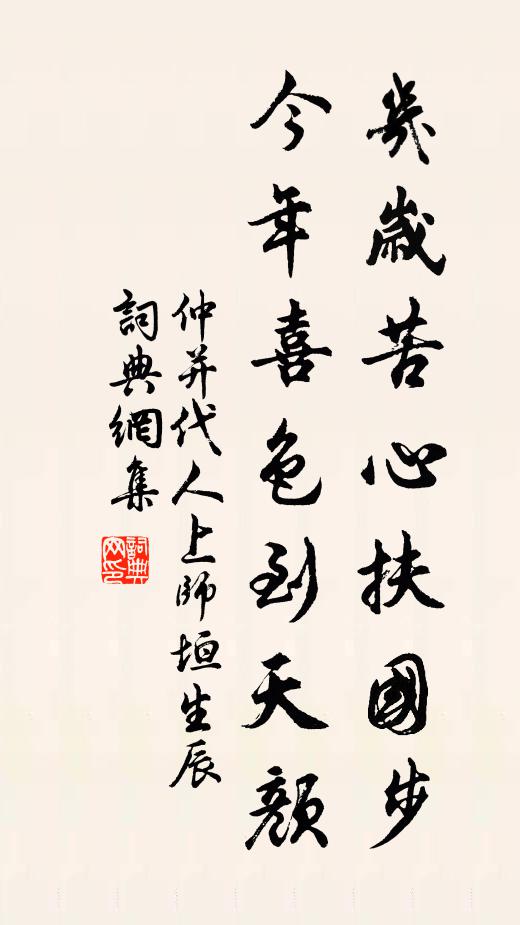 幾歲苦心扶國步
今年喜色到天顏
仲并代人上師垣生辰
詞典網集
詞典網印